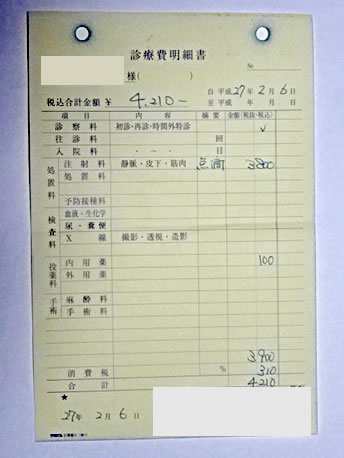 診療費明細書
No.
様( )
自 平成 27年 2月 6日
税込合計金額 ¥ 4,210-
至 平成 年 月 日
項目 内容 摘要 金額(税抜・税込)
診察料 初診・再診・時間外特診 ✓
往診料 回
入院料 ・ ～ ・ 日
処置料 注射料 静脈・皮下・筋肉 点滴 3,800
処置料
予防接種料
検査料 血液・生化学
尿・糞便
X線 撮影・透視・造影
投薬料 内用薬 100
外用薬
手術 麻酔料
手術料
3,900
消費税 % 310
合計 4,210
★
27年 2月 6日